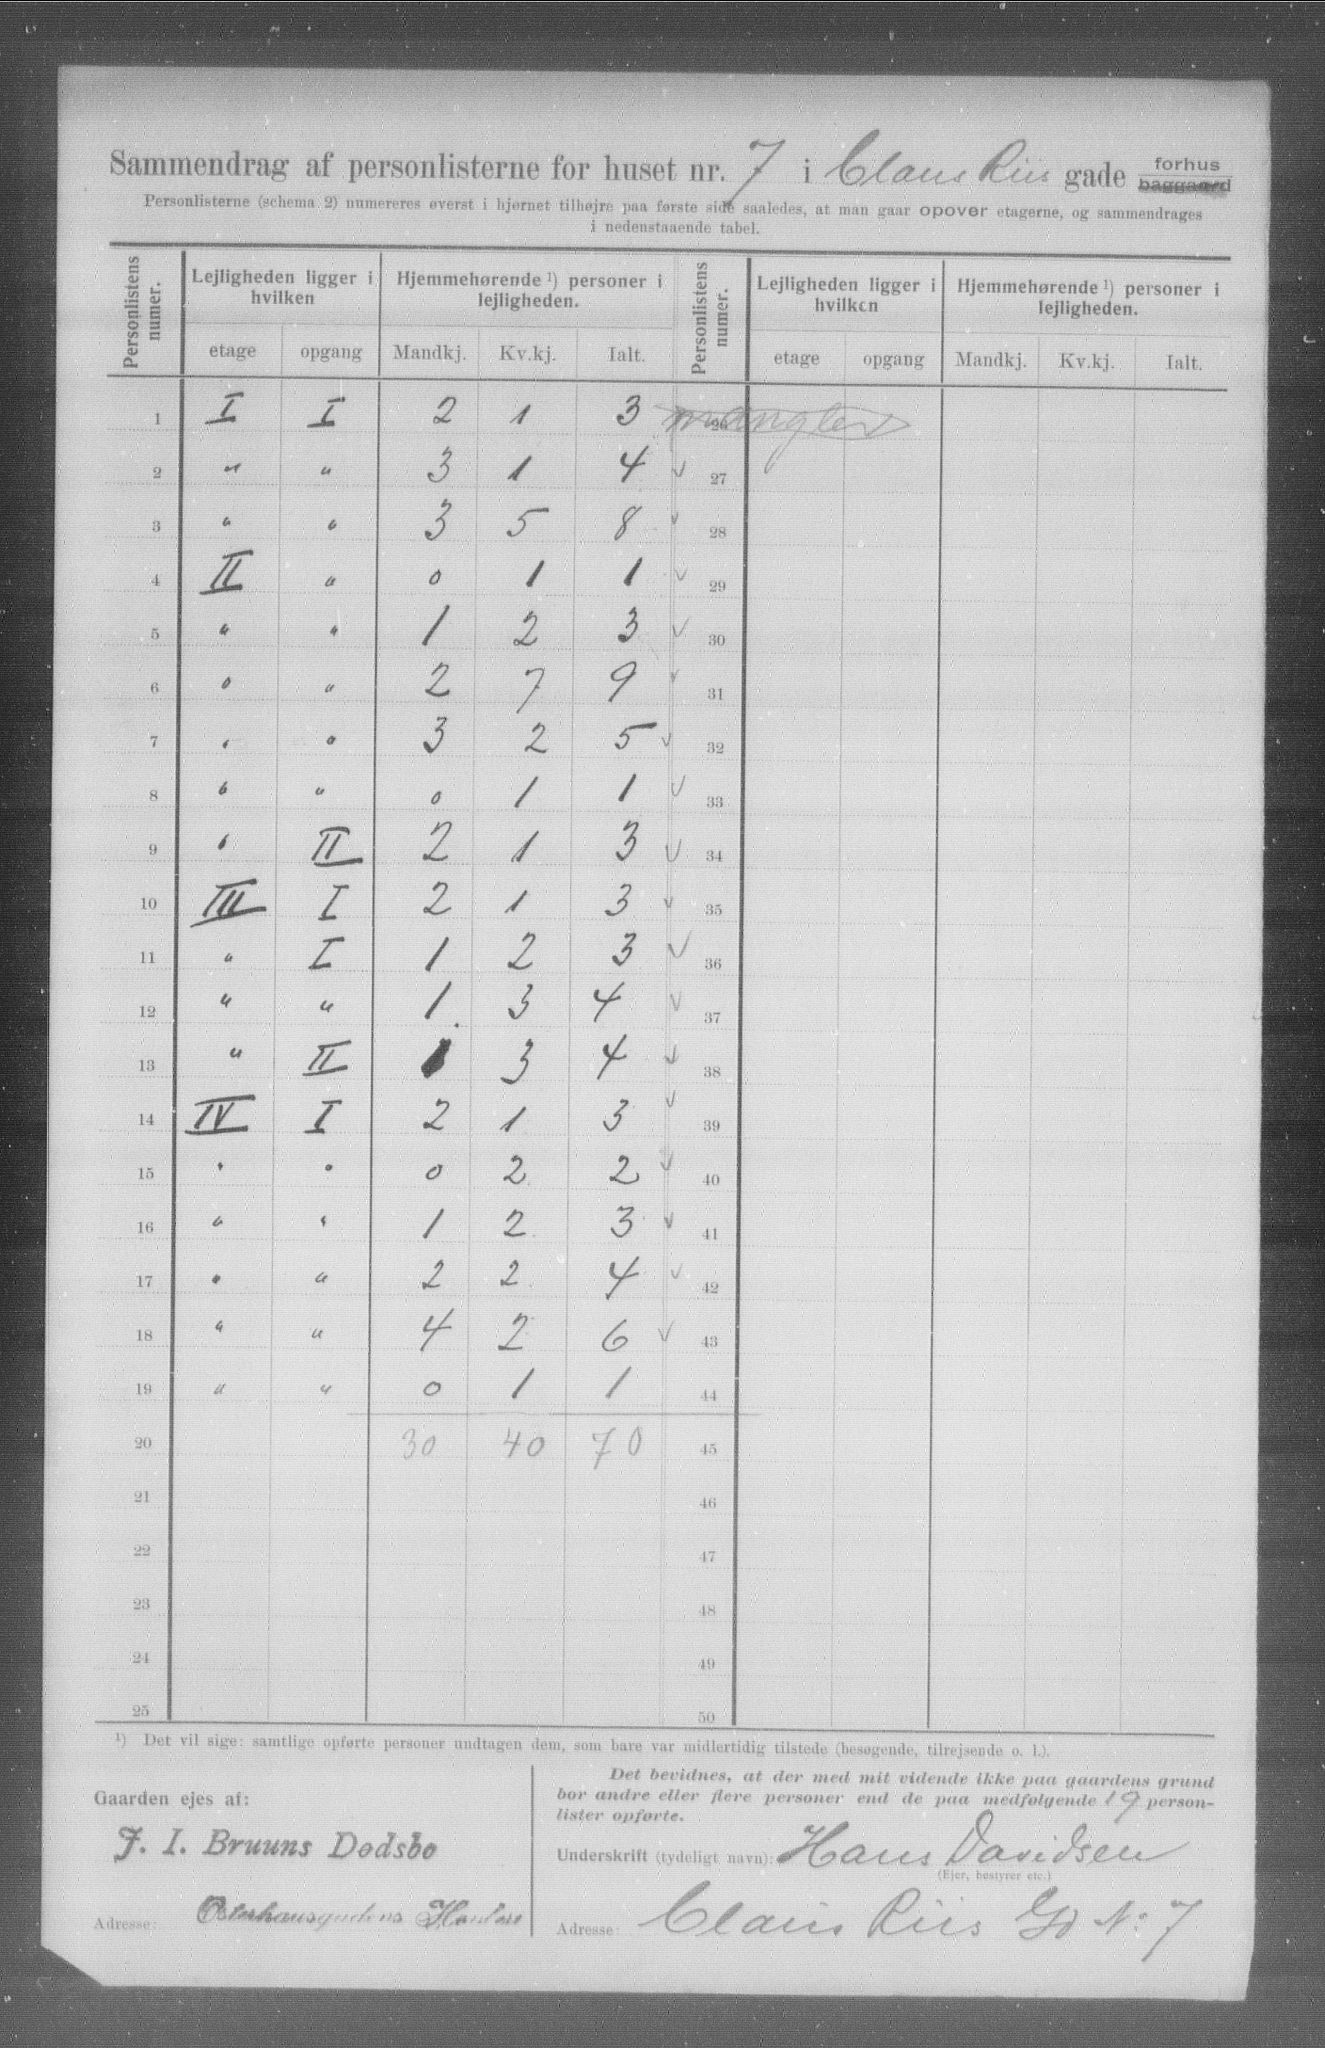 Sammendrag af personlisterne for huset nr. 7 i Claus Riis gade forhus baggaard
Personlisterne (schema 2) numereres øverst i hjørnet tilhøjre paa første side saaledes, at man gaar opover etagerne, og sammendrages
i nedenstaaende tabel.
Personlistens numer. Lejligheden ligger i hvilken Hjemmehørende ¹) personer i lejligheden. Personlistens numer. Lejligheden ligger i hvilken Hjemmehørende ¹) personer i lejligheden.
etage opgang Mandkj. Kv.kj. Ialt. etage opgang Mandkj. Kv.kj. Ialt.
1 I I 2 1 3 26 mangler
2 " " 3 1 4 v 27
3 " " 3 5 8 v 28
4 II " 0 1 1 v 29
5 " " 1 2 3 v 30
6 " " 2 7 9 v 31
7 " " 3 2 5 v 32
8 " " 0 1 1 v 33
9 " II 2 1 3 v 34
10 III I 2 1 3 v 35
11 " I 1 2 3 v 36
12 " " 1 3 4 v 37
13 " II 1 3 4 v 38
14 IV I 2 1 3 v 39
15 " " 0 2 2 v 40
16 " " 1 2 3 v 41
17 " " 2 2 4 v 42
18 " " 4 2 6 v 43
19 " " 0 1 1 44
20 30 40 70 45
21 46
22 47
23 48
24 49
25 50
¹) Det vil sige: samtlige opførte personer undtagen dem, som bare var midlertidig tilstede (besøgende, tilrejsende o. l.).
Gaarden ejes af:
J. I. Bruuns Dødsbo
Adresse:
Det bevidnes, at der med mit vidende ikke paa gaardens grund
bor andre eller flere personer end de paa medfølgende 19 person-
lister opførte.
Underskrift (tydeligt navn): Hans Davidsen
(Ejer, bestyrer etc.)
Adresse: Claus Riis Gd No 7